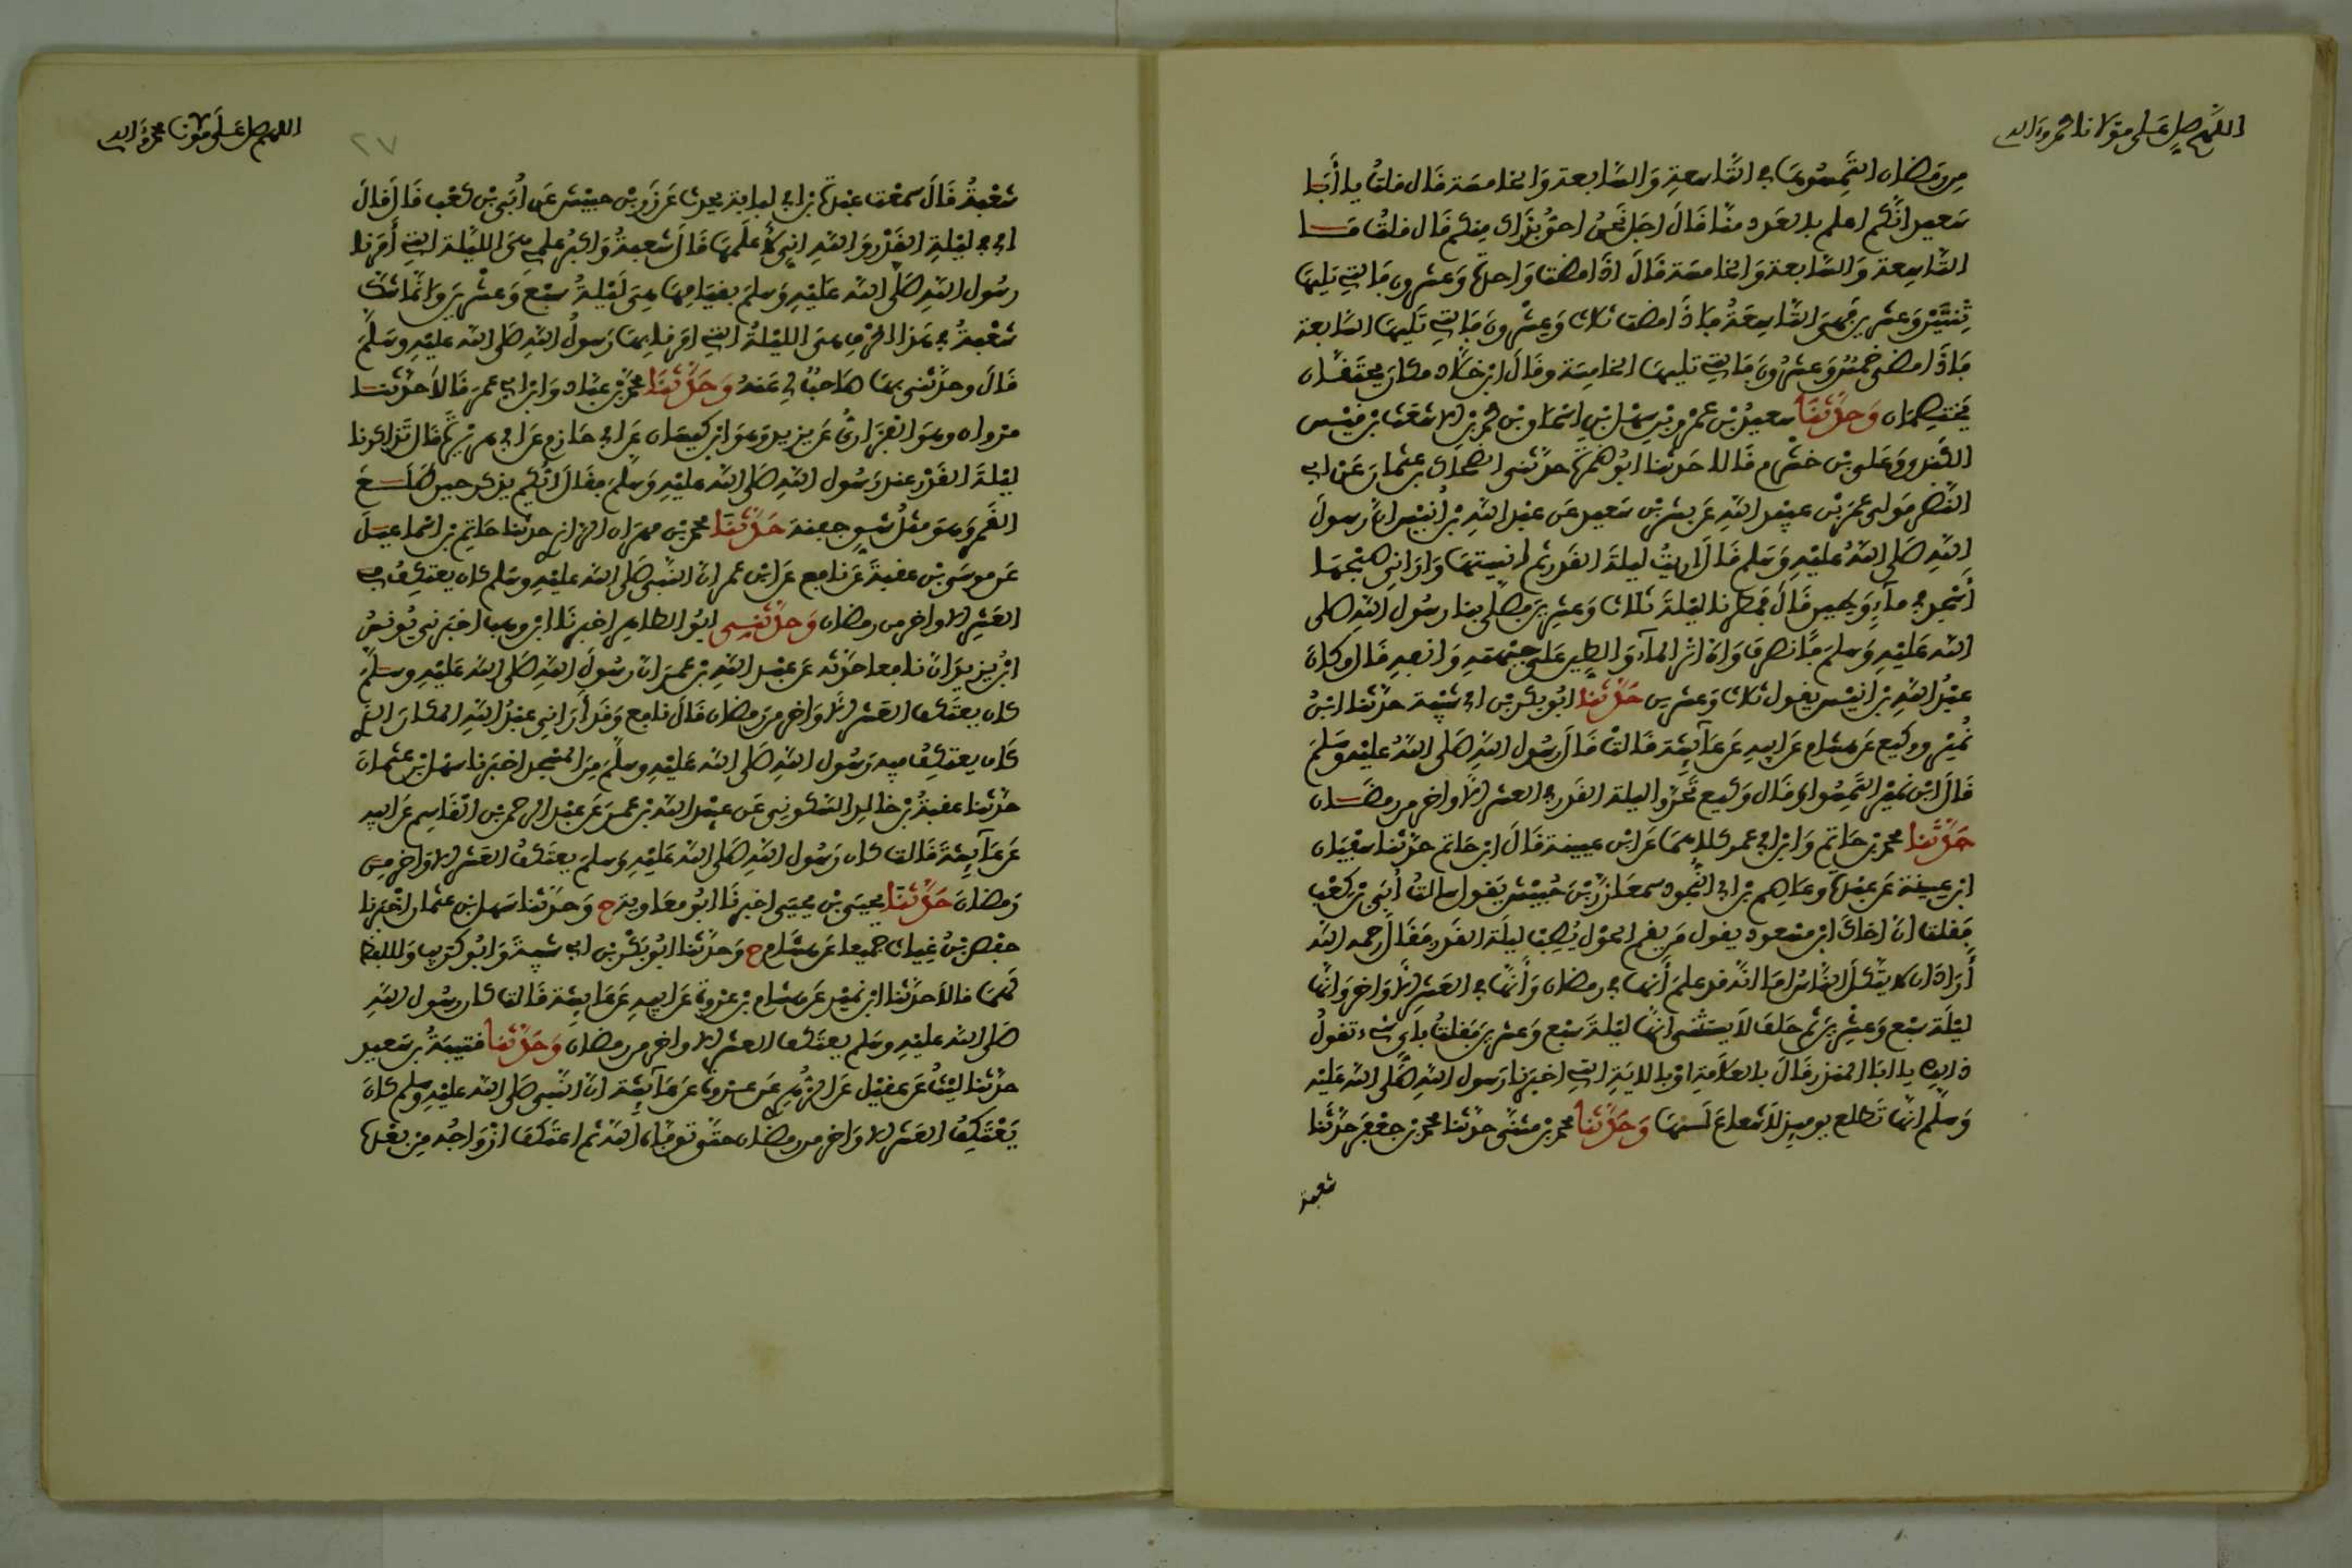 اللهم صل على مولانا محمد وءاله
من رمضان التمسوها في التاسعة والسابعة والخامسة قال قلت يا أبا
سعيد انكم اعلم بالعدد منا قال اجل نحن احق بذاك منكم قال قلت ما
التاسعة والسابعة والخامسة قال اذا مضت واحدة وعشرون فالتي تليها
ثنتين وعشرين فهي التاسعة فاذا مضت ثلاث وعشرون فالتي تليها السابعة
فاذا مضى خمس وعشرون فالتي تليها الخامسة وقال ابن خلاد مكان يحتقان
يختصمان وحدثنا سعيد بن عمرو بن سهل بن اسحاق بن محمد بن الاشعث بن قيس
الكندي وعلي بن خشرم قالا حدثنا ابو ضمرة حدثني الضحاك بن عثمان عن ابي
النضر مولى عمر بن عبيد الله عن بسر بن سعيد عن عبد الله بن أنيس ان رسول
الله صلى الله عليه وسلم قال أريت ليلة القدر ثم انسيتها واراني صبحها
أسجد في ماء وطين قال فمطرنا ليلة ثلاث وعشرين فصلى بنا رسول الله صلى
الله عليه وسلم فانصرف وان اثر الماء والطين على جبهته وانفه قال وكان
عبد الله بن انيس يقول ثلاث وعشرين حدثنا ابو بكر بن ابي شيبة حدثنا ابن
نمير ووكيع عن هشام عن ابيه عن عائشة قالت قال رسول الله صلى الله عليه وسلم
قال ابن نمير التمسوا وقال وكيع تحروا ليلة القدر في العشر الاواخر من رمضان
حدثنا محمد بن حاتم وابن ابي عمر كلاهما عن ابن عيينة قال ابن حاتم حدثنا سفيان
ابن عيينة عن عبدة وعاصم بن ابي النجود سمعا زر بن حبيش يقول سالت أبي بن كعب
فقلت ان اخاك ابن مسعود يقول من يقم الحول يصب ليلة القدر فقال رحمه الله
أراد ان لا يتكل الناس اما انه قد علم أنها في رمضان وأنها في العشر الاواخر وانها
ليلة سبع وعشرين ثم حلف لا يستثني انها ليلة سبع وعشرين فقلت باي شيء تقول
ذالك يا ابا المنذر قال بالعلامة او بالاية التي اخبرنا رسول الله صلى الله عليه
وسلم انها تطلع يومئذ لا شعاع لها وحدثنا محمد بن مثنى حدثنا محمد بن جعفر حدثنا
شعبة
اللهم صل على مولانا محمد وءاله
٢٧
شعبة قال سمعت عبدة بن ابي لبابة يحدث عن زر بن حبيش عن أبي بن كعب قال قال
ابي في ليلة القدر والله اني لأعلمها قال شعبة واكبر علمي هي الليلة التي أمرنا
رسول الله صلى الله عليه وسلم بقيامها هي ليلة سبع وعشرين وانما شك
شعبة في هذا الحرف هي الليلة التي امرنا بها رسول الله صلى الله عليه وسلم
قال وحدثني بها صاحب لي عنه وحدثنا محمد بن عباد وابن ابي عمر قالا حدثنا
مروان وهو الفزاري عن يزيد وهو ابن كيسان عن ابي حازم عن ابي هريرة قال تذاكرنا
ليلة القدر عند رسول الله صلى الله عليه وسلم فقال أيكم يذكر حين طلع
القمر وهو مثل شق جفنة حدثنا محمد بن مهران الرازي حدثنا حاتم بن اسماعيل
عن موسى بن عقبة عن نافع عن ابن عمر ان النبي صلى الله عليه وسلم كان يعتكف في
العشر الاواخر من رمضان وحدثني ابو الطاهر اخبرنا ابن وهب اخبرني يونس
ابن يزيد ان نافعا حدثه عن عبد الله بن عمر ان رسول الله صلى الله عليه وسلم
كان يعتكف العشر الاواخر من رمضان قال نافع وقد أراني عبد الله المكان الذي
كان يعتكف فيه رسول الله صلى الله عليه وسلم من المسجد اخبرنا سهل بن عثمان
حدثنا عقبة بن خالد السكوني عن عبيد الله بن عمر عن عبد الرحمن بن القاسم عن ابيه
عن عائشة قالت كان رسول الله صلى الله عليه وسلم يعتكف العشر الاواخر من
رمضان حدثنا يحيى بن يحيى اخبرنا ابو معاوية ح وحدثنا سهل بن عثمان اخبرنا
حفص بن غياث جميعا عن هشام ح وحدثنا ابو بكر بن ابي شيبة وابو كريب واللفظ
لهما قالا حدثنا ابن نمير عن هشام بن عروة عن ابيه عن عائشة قالت كان رسول الله
صلى الله عليه وسلم يعتكف العشر الاواخر من رمضان وحدثنا قتيبة بن سعيد
حدثنا ليث عن عقيل عن الزهري عن عروة عن عائشة ان النبي صلى الله عليه وسلم كان
يعتكف العشر الاواخر من رمضان حتى توفاه الله ثم اعتكف ازواجه من بعده